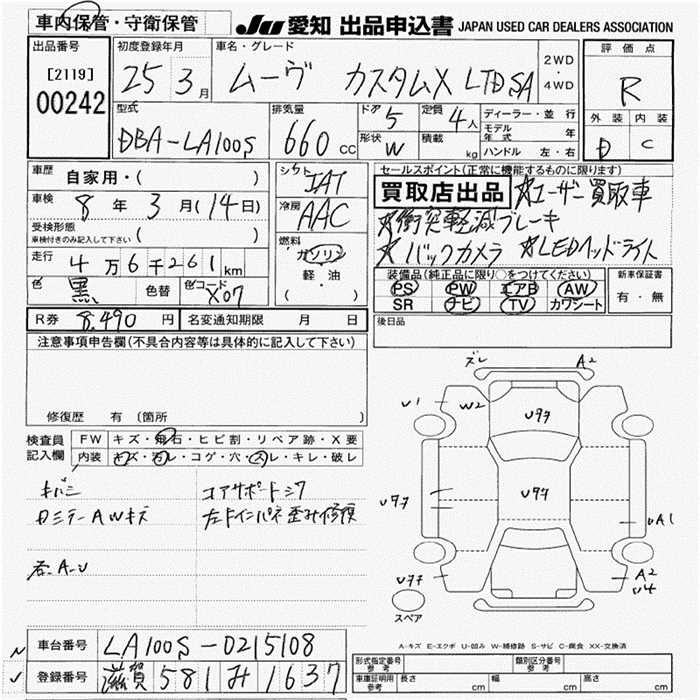 車内保管・守衛保管
JU 愛知 出品申込書 JAPAN USED CAR DEALERS ASSOCIATION
出品番号 初度登録年月 車名・グレード 2WD・4WD 評価点
[2119] 00242 25 3月 ムーヴ カスタムX LTDSA R
型式 排気量 ドア 5 定員 4人 ディーラー・並行 外装 内装
DBA-LA100S 660cc 形状 W 積載 kg モデル年式 年 D C
ハンドル 左・右
車歴 自家用・( ) シフト IAT セールスポイント(正常に機能するものに限ります)
車検 8年 3月(14日) 冷房 AAC 買取店出品 ★ユーザー買取車
受検形態 ( ) ★衝突軽減ブレーキ
車検付きのみ記入して下さい 燃料 ★バックカメラ ★LEDヘッドライト
走行 4万6千261km ガソリン 装備品(純正品に限り○をつけてください) 新車保証書
色 黒 色替 色コード X07 軽・油 PS PW エアB AW 有・無
( ) SR ナビ TV カワシート
R券 8,490円 名変通知期限 月 日 後日品
注意事項申告欄(不具合内容等は具体的に記入して下さい)
修復歴 有 〔箇所 〕
検査員記入欄 FW キズ・飛石・ヒビ割・リペア跡・X要
内装 キズ・汚レ・コゲ・穴・スレ・キレ・破レ
キバミ コアサポートシワ
ロミラーAWキズ 左Fインパネ歪み修復
右A-U
ズレ A2
U1 W2 Uタナ
Uタナ Uタナ
UA1
Uタナ A2
U4
スペア
A-キズ E-エクボ U-凹み W-補修跡 S-サビ C-腐食 XX-交換済
車台番号 LA100S-0215108 形式指定番号 参考 類別区分番号 参考
登録番号 滋賀 581 み 1637 車庫証明用 参考 長さ cm 幅 cm 高さ cm